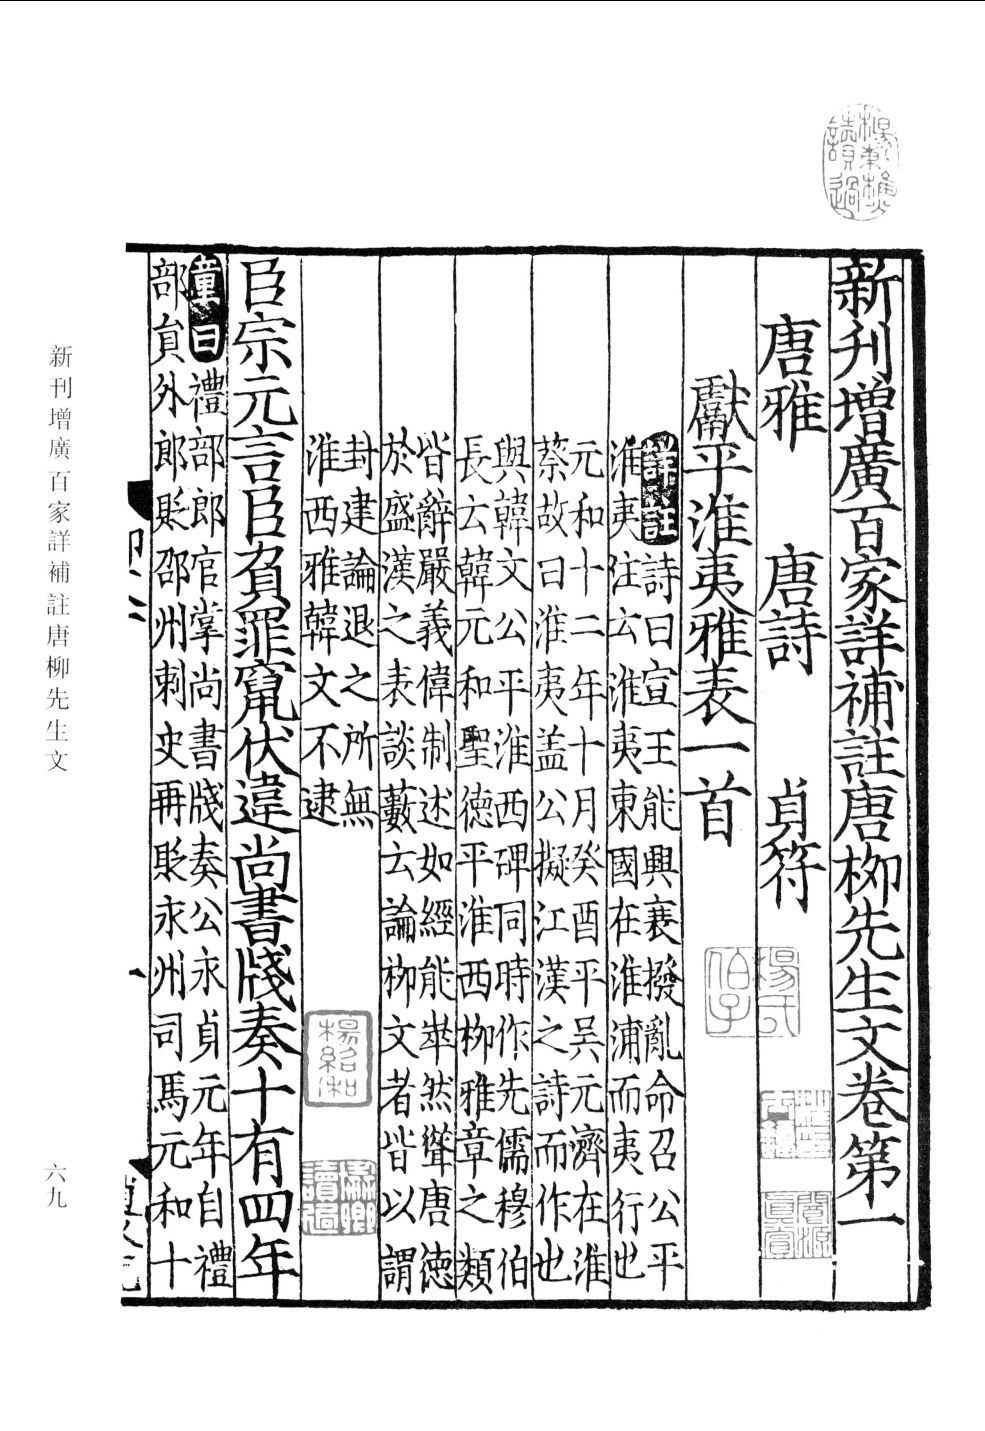 新刊增廣百家詳補註唐柳先生文卷第一
唐雅 唐詩 貞符
獻平淮夷雅表一首
詳註詩曰宣王能興衰撥亂命召公平
淮夷注云淮夷東國在淮浦而夷行也
元和十二年十月癸酉平吳元濟在淮
蔡故曰淮夷盖公擬江漢之詩而作也
與韓文公平淮西碑同時作先儒穆伯
長云韓元和聖德平淮西柳雅章之類
皆辭嚴義偉制述如經能崒然聳唐德
於盛漢之表談藪云論柳文者皆以謂
封建論退之所無
淮西雅韓文不逮
臣宗元言臣負罪竄伏違尚書牋奏十有四年
童曰禮部郎官掌尚書牋奏公永貞元年自禮
部貟外郎貶邵州刺史再貶永州司馬元和十
楊東樵讀過
楊氏伯子
楊紹和
新刊增廣百家詳補註唐柳先生文
六九